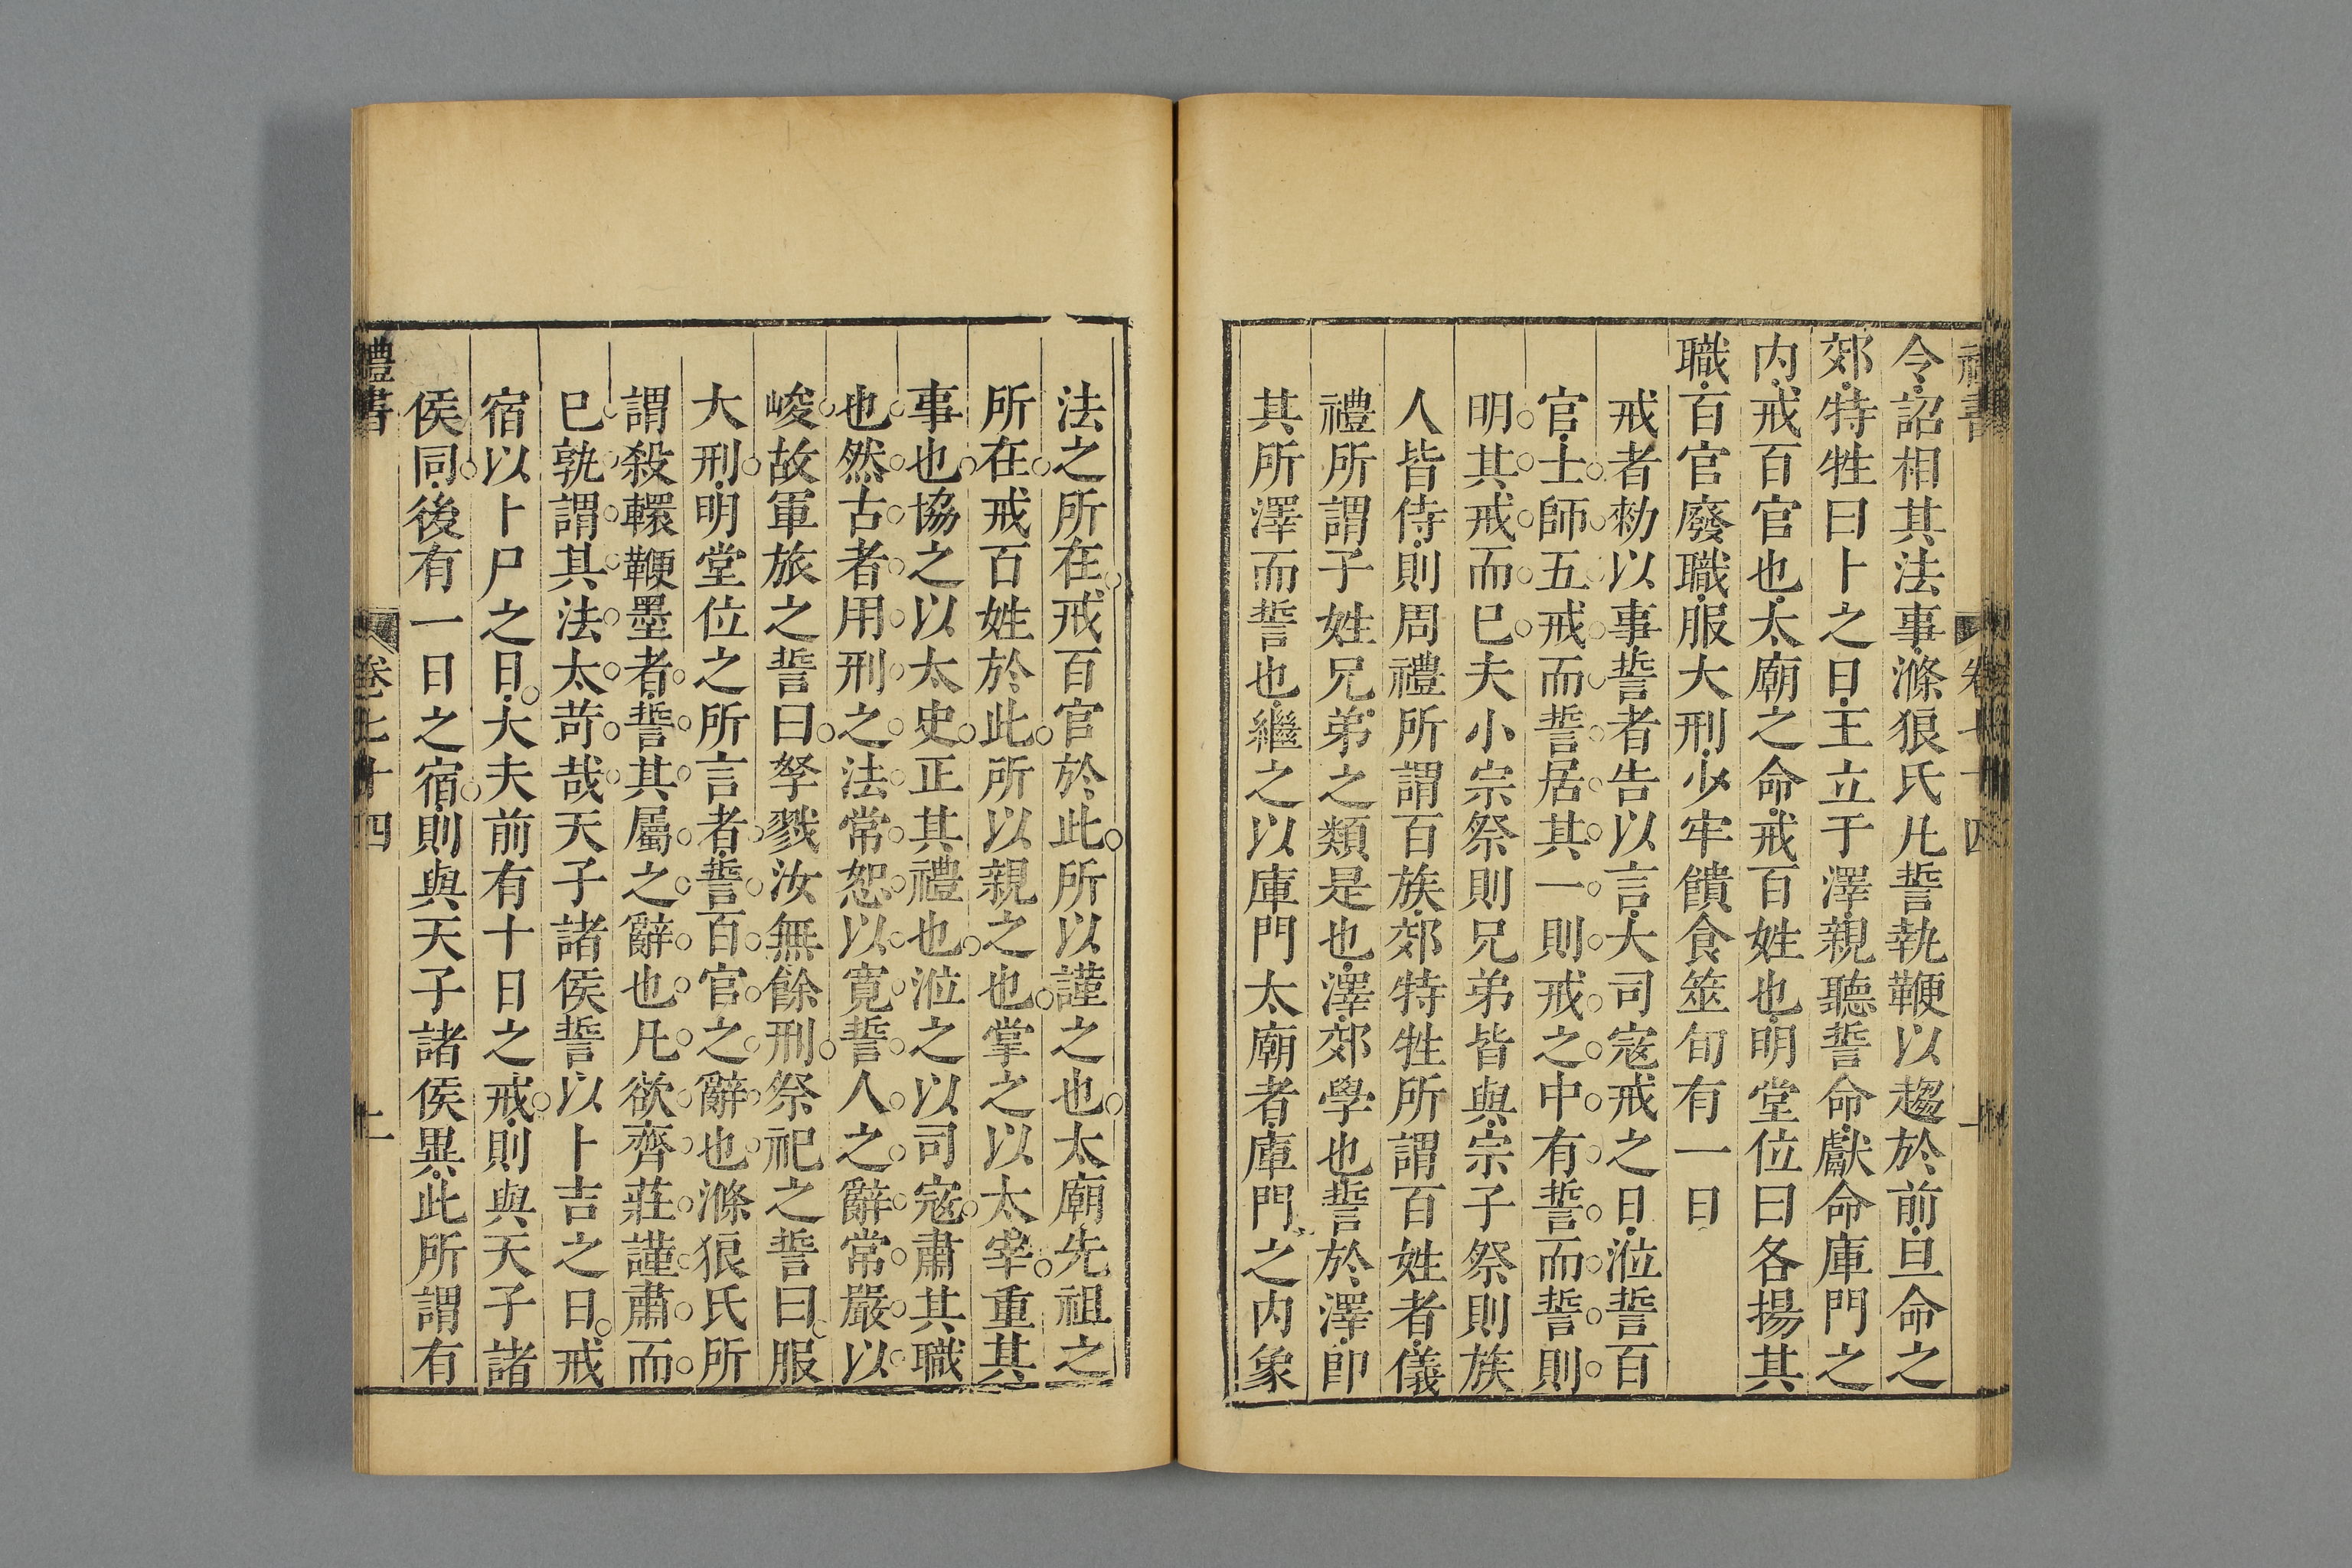 令詔相其法事滌狼氏凡誓執鞭以趨於前旦命之
郊特牲曰卜之日王立于澤親聽誓命獻命庫門之
内戒百官也太廟之命戒百姓也明堂位曰各揚其
職百官廢職服大刑少牢饋食筮旬有一日
戒者勑以事誓者告以言大司寇戒之日涖誓百
官士師五戒而誓居其一則戒之中有誓而誓則
明其戒而巳夫小宗祭則兄弟皆與宗子祭則族
人皆侍則周禮所謂百族郊特牲所謂百姓者儀
禮所謂子姓兄弟之類是也澤郊學也誓於澤卽
其所澤而誓也繼之以庫門太廟者庫門之内象
法之所在戒百官於此所以謹之也太廟先祖之
所在戒百姓於此所以親之也掌之以太宰重其
事也協之以太史正其禮也涖之以司寇肅其職
也然古者用刑之法常恕以寛誓人之辭常嚴以
峻故軍旅之誓曰孥戮汝無餘刑祭祀之誓曰服
大刑明堂位之所言者誓百官之辭也滌狼氏所
謂殺轘鞭墨者誓其屬之辭也凡欲齊莊謹肅而
巳孰謂其法太苛哉天子諸侯誓以卜吉之日戒
宿以卜尸之日大夫前有十日之戒則與天子諸
侯同後有一日之宿則與天子諸侯異此所謂有
禮書
卷七十四
十一